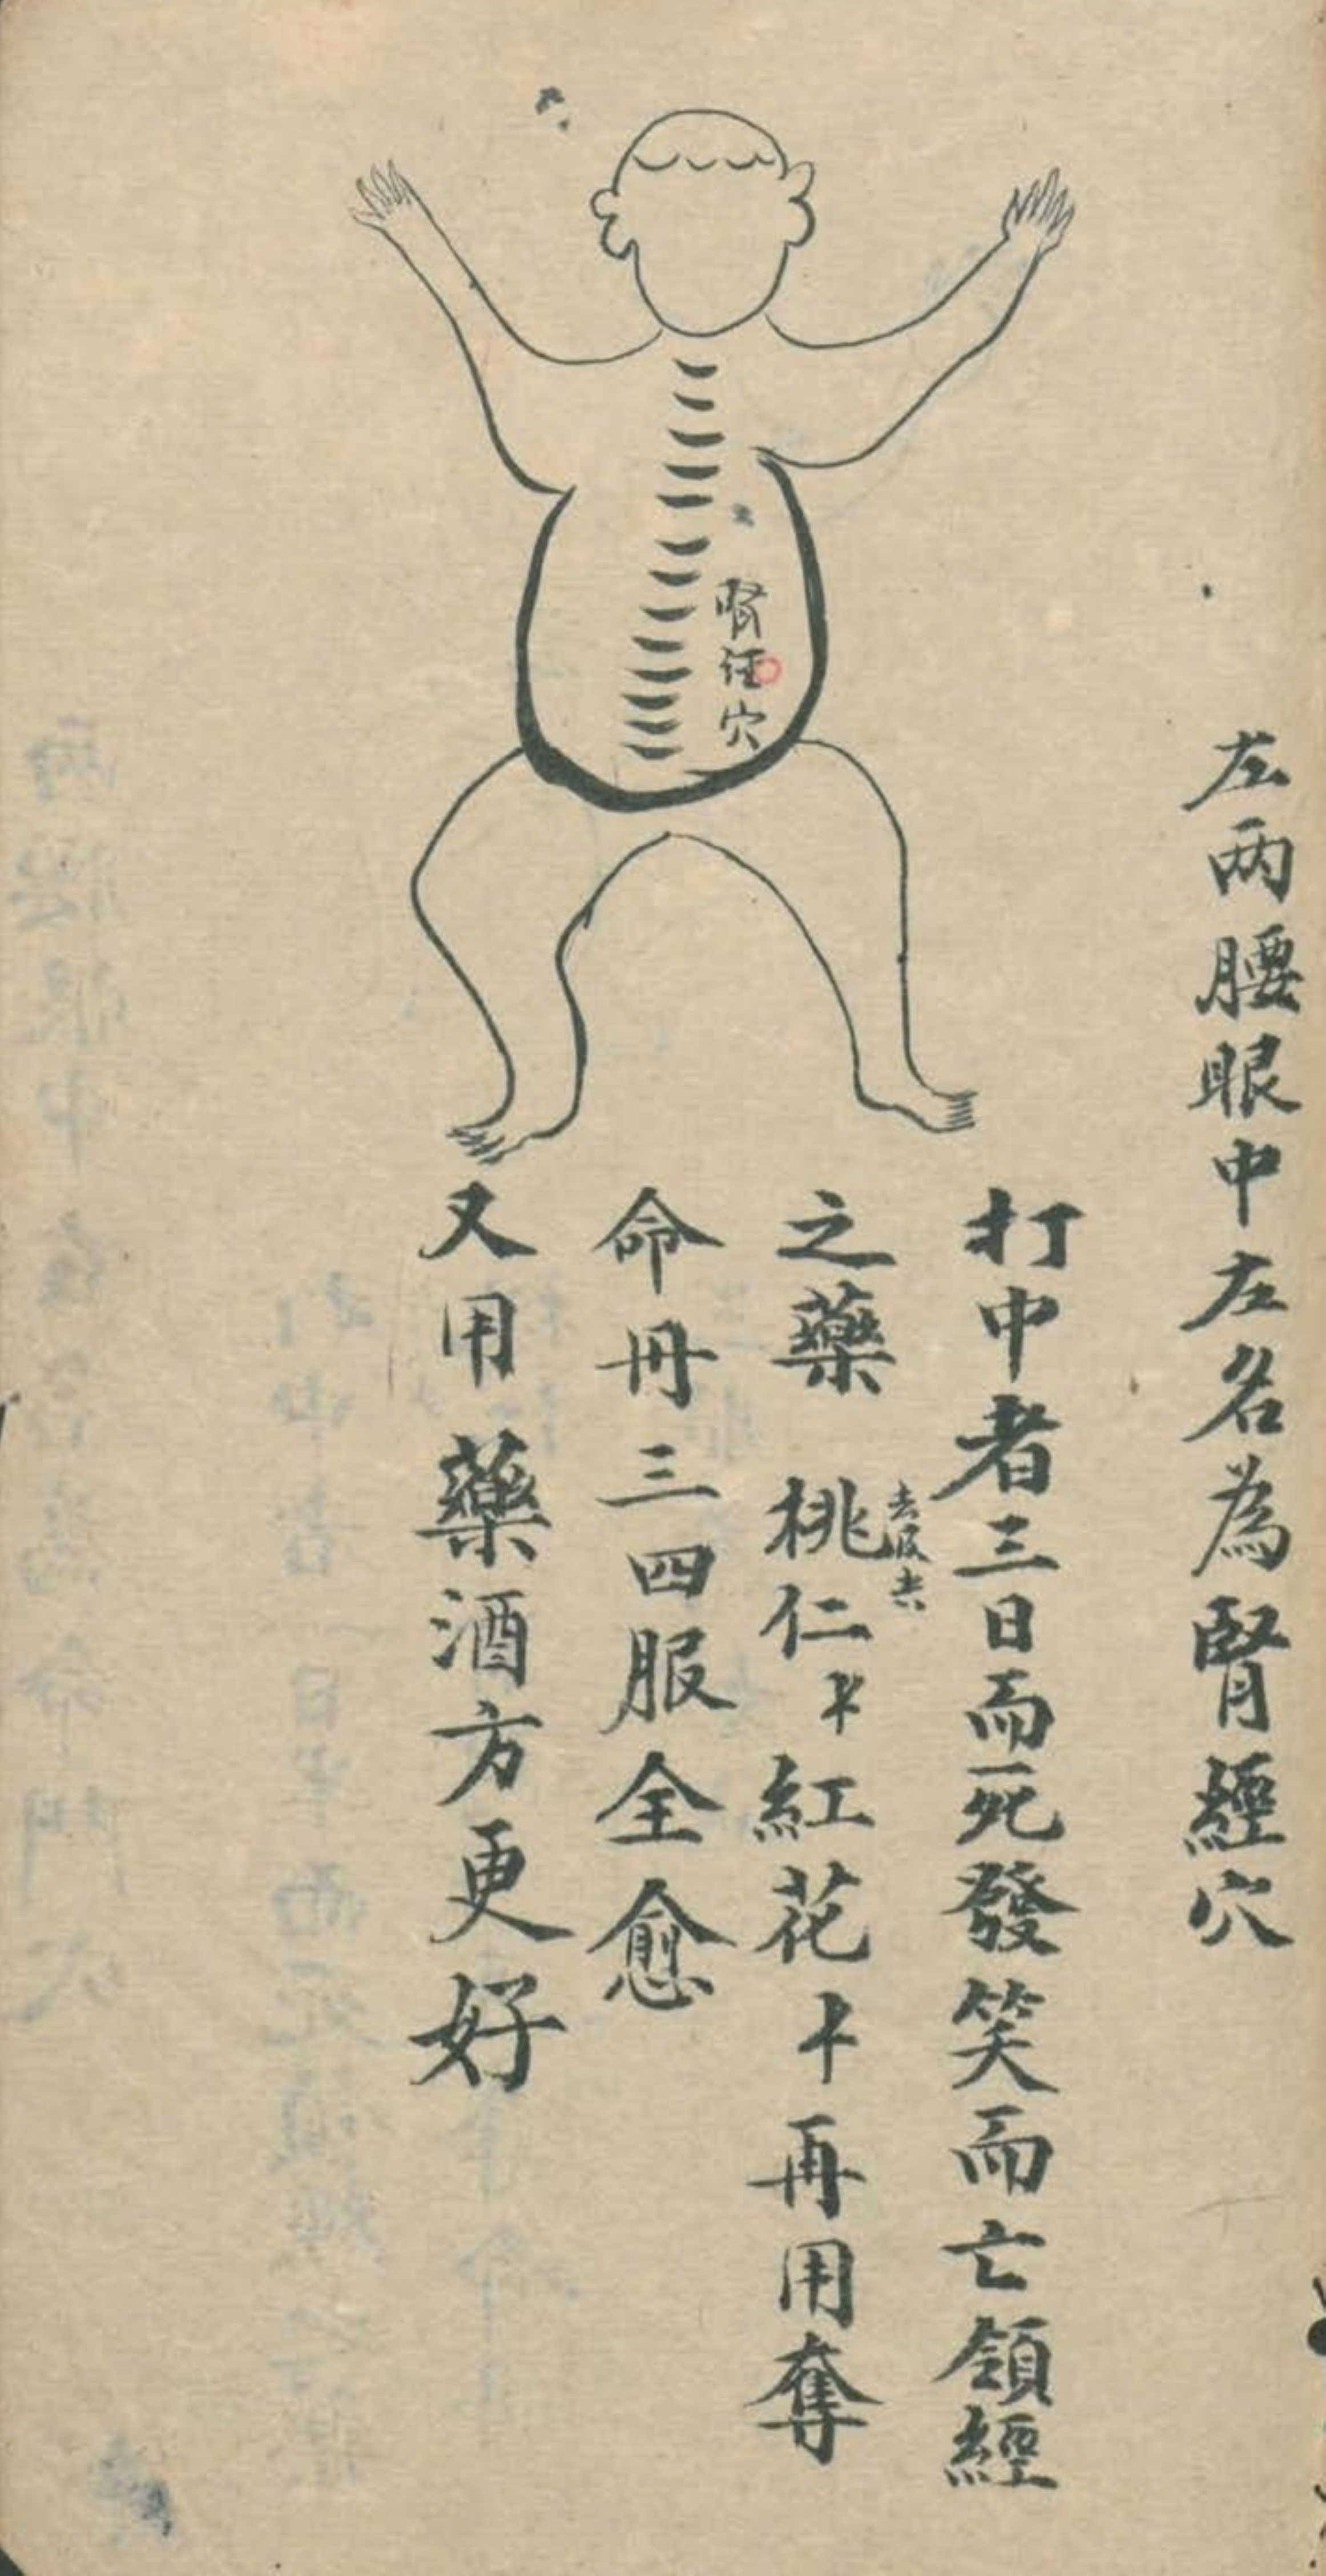 左兩腰眼中左名為腎經穴
打中者三日而死發笑而亡領經
之藥 桃仁 紅花 再用奪
去皮
命丹三四服全愈
又用藥酒方更好
腎经穴